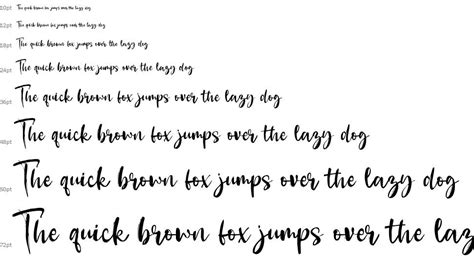 10pt The quick brown fox jumps over the lazy dog
12pt The quick brown fox jumps over the lazy dog
18pt The quick brown fox jumps over the lazy dog
24pt The quick brown fox jumps over the lazy dog
36pt The quick brown fox jumps over the lazy dog
48pt The quick brown fox jumps over the lazy dog
60pt The quick brown fox jumps over the lazy dog
72pt The quick brown fox jumps over the laz